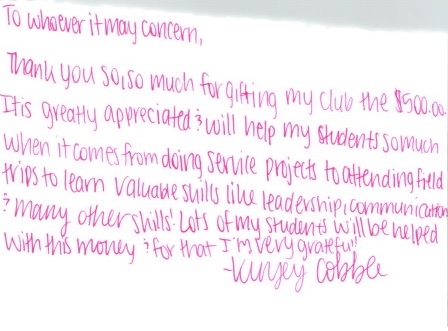 To whoever it may concern,
Thank you so, so much for gifting my club the $500.00.
It is greatly appreciated & will help my students so much
when it comes from doing service projects to attending field
trips to learn valuable skills like leadership, communication
& many other skills! Lots of my students will be helped
with this money & for that I'm very grateful!
- Cobble